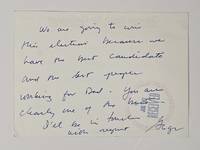 We are going to win
this election because we
have the best candidate
and the best people
working for Dad. You are
clearly one of the best
I'll be in touch
with regard